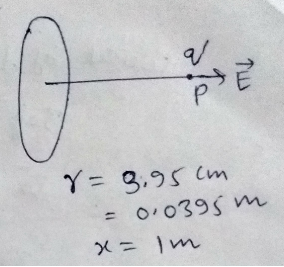 q
P E⃗
r = 3.95 cm
= 0.0395 m
x = 1m